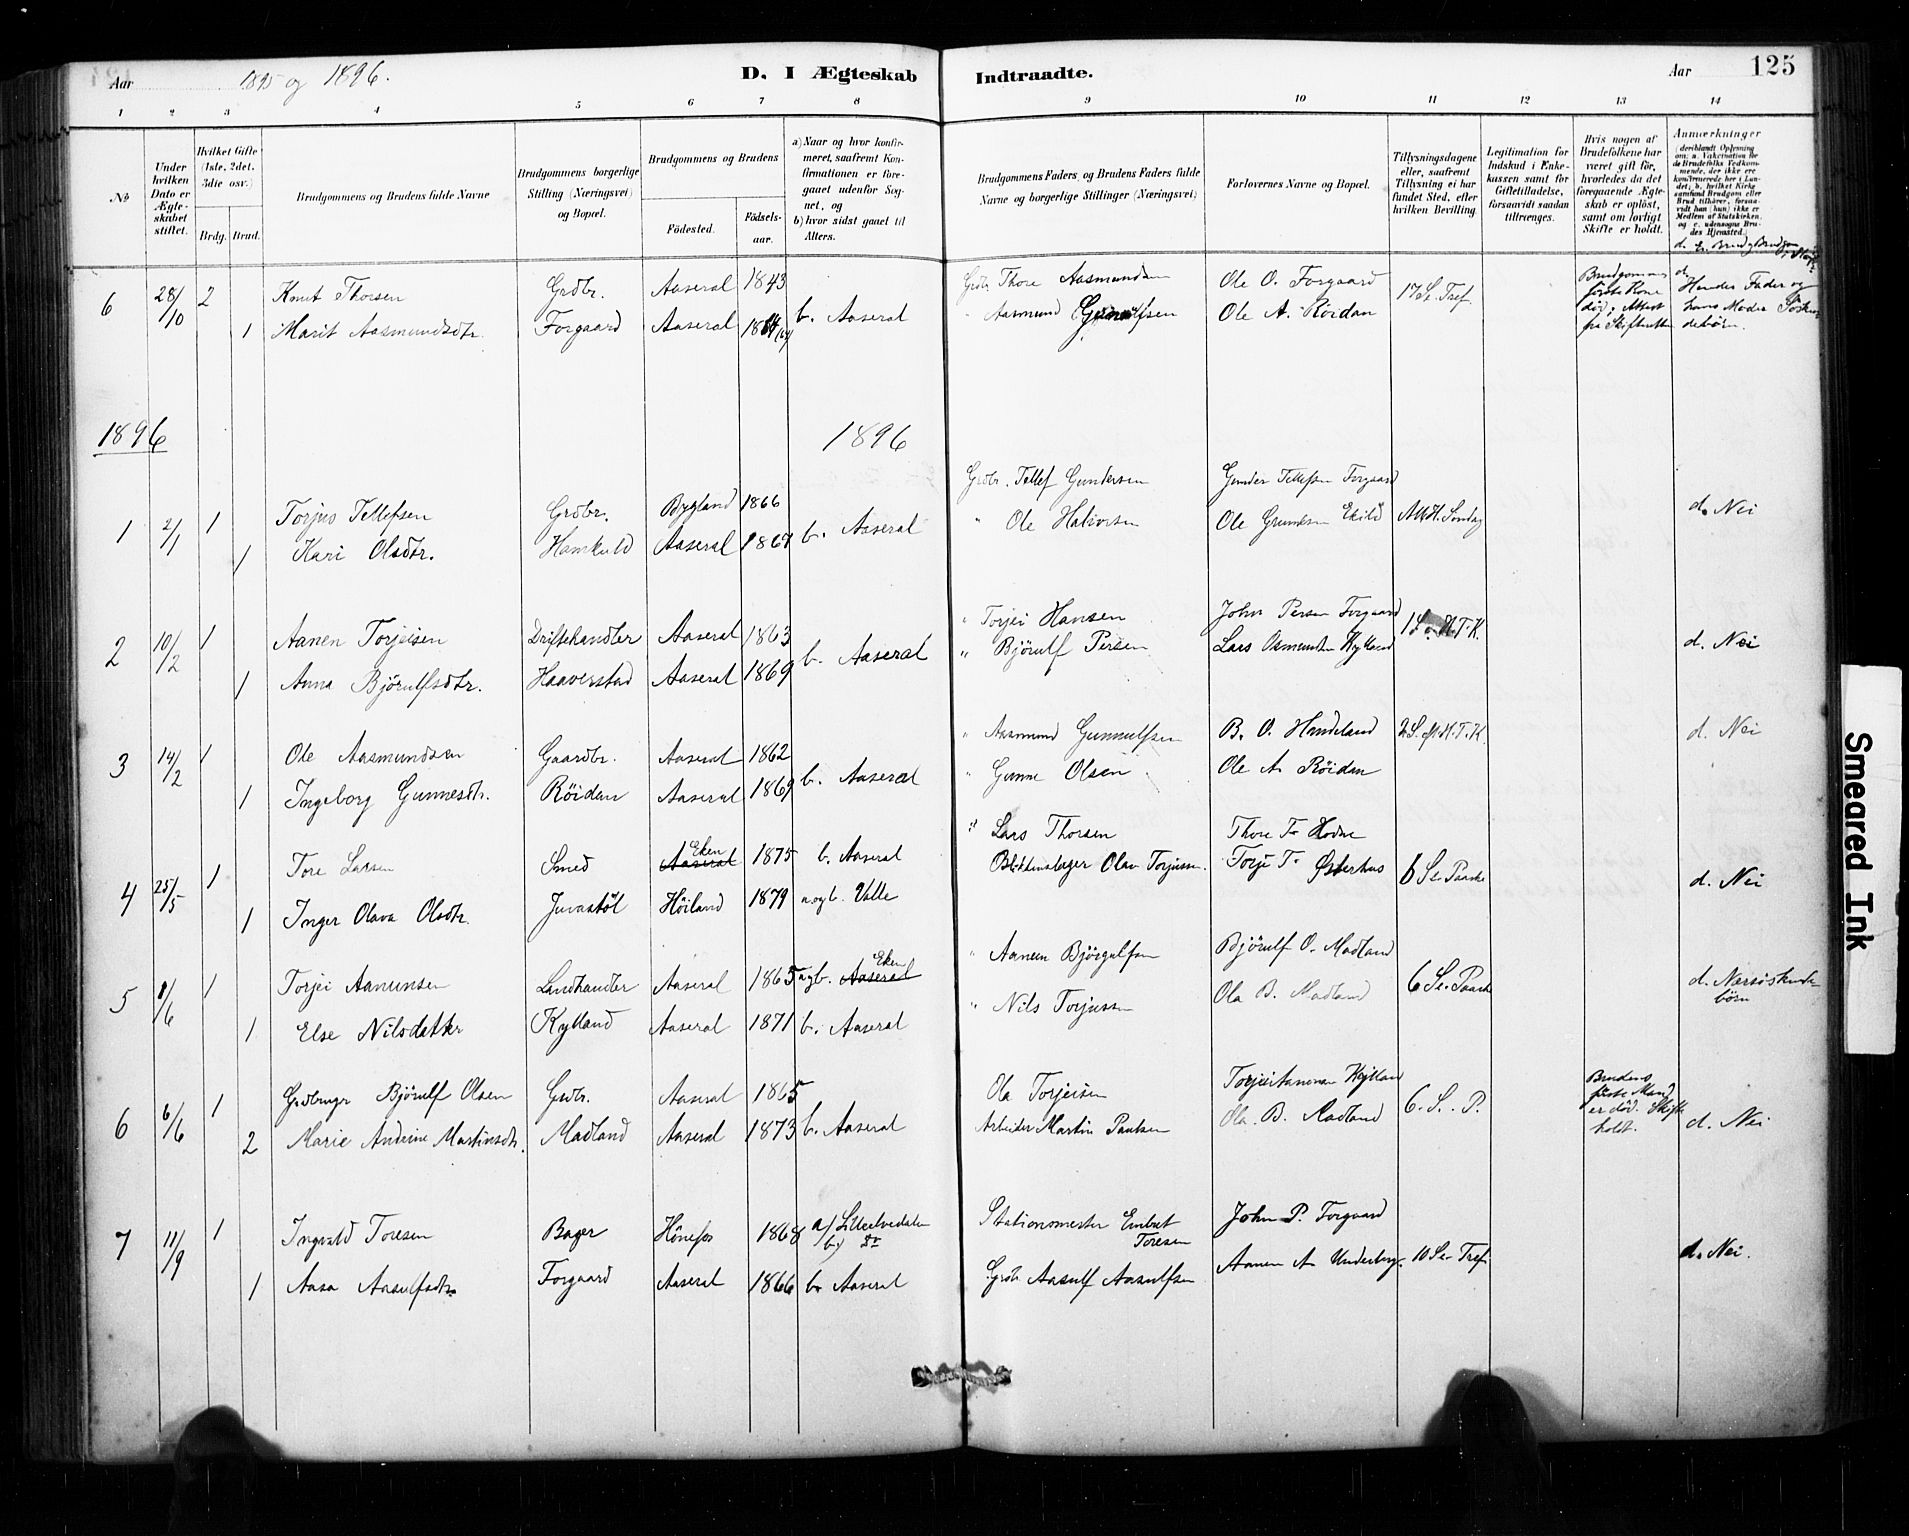 Aar 1895 og 1896. D. I Ægteskab Indtraadte. Aar 125
1 2 3 4 5 6 7 8 9 10 11 12 13 14
No
Under hvilken Dato er Ægteskabet stiftet.
Hvilket Gifte (1ste, 2det, 3die osv.)
Brdg. Brud.
Brudgommens og Brudens fulde Navne
Brudgommens borgerlige Stilling (Næringsvei) og Bopæl.
Brudgommens og Brudens
Fødested. Fødselsaar.
a) Naar og hvor konfirmeret, saafremt Konfirmationen er foregaaet udenfor Sognet, og
b) hvor sidst gaaet til Alters.
Brudgommens Faders og Brudens Faders fulde Navne og borgerlige Stillinger (Næringsvei)
Forlovernes Navne og Bopæl.
Tillysningsdagene eller, saafremt Tillysning ei har fundet Sted, efter hvilken Bevilling.
Legitimation for Indskud i Enkekassen samt for Giftetilladelse, forsaavidt saadan tiltrænges.
Hvis nogen af Brudefolkene har været gift før, hvorledes da det foregaaende Ægteskab er opløst, samt om lovligt Skifte er holdt.
Anmærkninger
(deriblandt Oplysning om: a. Vakcination for de Brudefolks Vedkommende, der ikke ere konfirmerede her i Landet; b. hvilket Kirkesamfund Brudgom eller Brud tilhører, forsaavidt han (hun) ikke er Medlem af Statskirken, og c. udensogns Brudes Hjemsted.)
6 28/10 2 Knut Thorsen Grdbr. Aaseral 1843 Grdbr. Thore Aasmundsen Ole O. Forgaard 17 S. Tref.
1 Marit Aasmundsdtr. Forgaard Aaseral b. Aaseral Aasmund Gunulfsen Ole A. Röidan
Brudgommens første Kone død; Attest fra Skifteretten
d. Hendes Fader og hans Moder Söskendebörn.
1896 1896
1 2/1 1 Torjus Tellefsen Grdbr. Bygland 1866 b. Aaseral Grdbr. Tellef Gundersen Gunder Tellefsen Forgaard d. Nei
1 Kari Olsdtr. Hamkold Aaseral 1867 " Ole Halvorsen Ole Gundersen Ekild Søndag
2 10/2 1 Aanen Torjeisen Driftehandler Aaseral 1863 b. Aaseral " Torjei Hansen John Persen Forgaard d. Nei
1 Anna Björulfsdtr. Haaverstad Aaseral 1869 " Björulf Persen Lars Osmundsen Kylland
3 14/2 1 Ole Aasmundsen Gaardbr. Aaseral 1862 b. Aaseral " Aasmund Gunnulfsen B. O. Hendeland 2 S. e. H.T.K. d. Nei
1 Ingeborg Gunnesdtr. Röidan Aaseral 1869 " Gunne Olsen Ole A. Röidan
4 25/5 1 Tore Larsen Smed Aaseral Eken 1875 b. Aaseral " Lars Thorsen Thore T. Hodne 6 S. e. Paaske d. Nei
1 Inger Olava Olsdtr. Juvastöl Höiland 1879 a. og b. Valle Blikkenslager Olav Torjussen. Torje T. Østerhus
5 8/6 1 Torjei Aanensen Landhandler Aaseral 1865 a. og b. Aaseral Eken " Aanen Björgulfsen Björulf O. Madland 6 S. e. Paaske d. Næsöskendebörn
1 Else Nilsdatter Kylland Aaseral 1871 b. Aaseral " Nils Torjussen Ola B. Madland
6 6/6 1 Grdbruger Björulf Olsen Grdbr. Aaseral 1865 b. Aaseral Ola Torjeisen Torjei Aanensen Kylland 6. S. P.
2 Marie Andrine Martinsdtr. Madland Aaseral 1873 Arbeider Martin Paulsen Ola B. Madland
Brudens første Mand er død. Skifte holdt.
d. Nei
7 11/9 1 Ingvald Toresen Bager Hönefos 1868 a/ Lilleelvedalen b) Do Stationsmester Embret Toresen John P. Forgaard
1 Aasa Aasulfsdtr. Forgaard Aaseral 1866 b. Aaseral Grdbr. Aasulf Aasulfsen Aanen A. Underberg. 10 S. e. Tref. d. Nei.
Smeared Ink